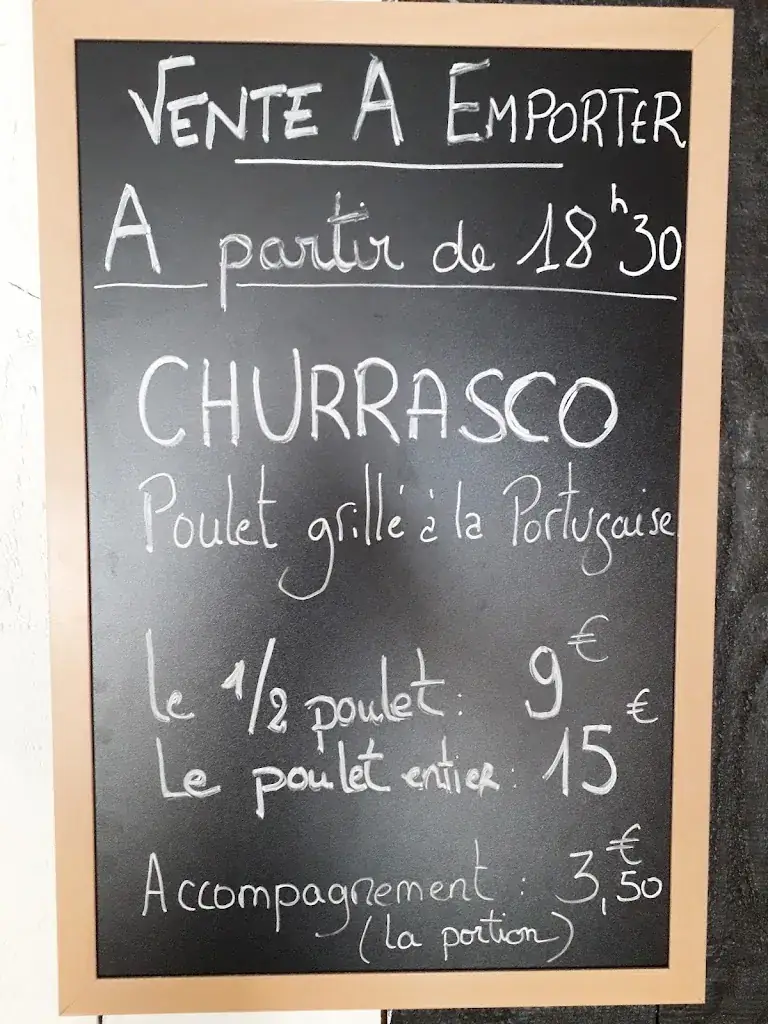 VENTE A EMPORTER
A partir de 18h30
CHURRASCO
Poulet grillé à la Portugaise
Le 1/2 poulet : 9€
Le poulet entier : 15€
Accompagnement : 3,50€
(la portion)